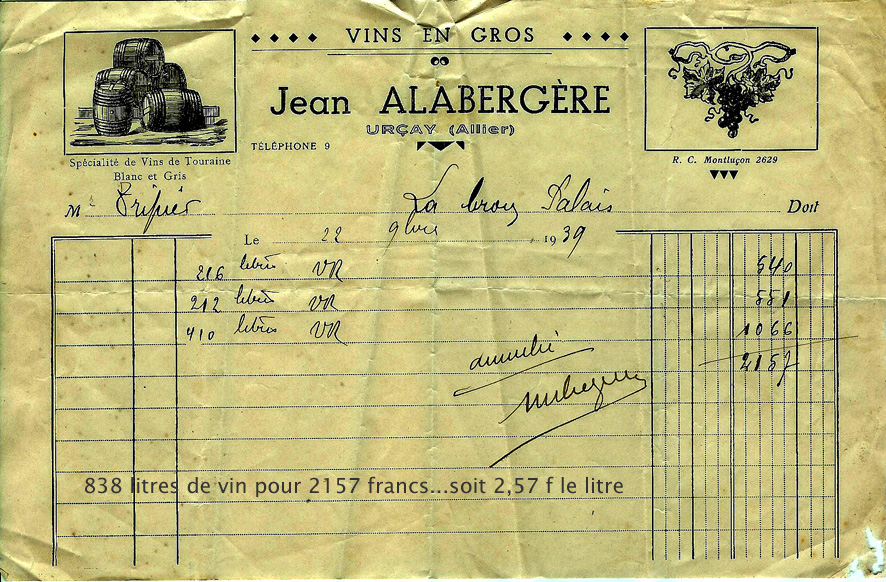 VINS EN GROS
Jean ALABERGÈRE
URÇAY (Allier)
TÉLÉPHONE 9
Spécialité de Vins de Touraine
Blanc et Gris
R. C. Montluçon 2629
M Doit
Le 22 9bre 1939
216 litres VR 540
212 litres VR 551
410 litres VR 1066
2157
838 litres de vin pour 2157 francs...soit 2,57 f le litre